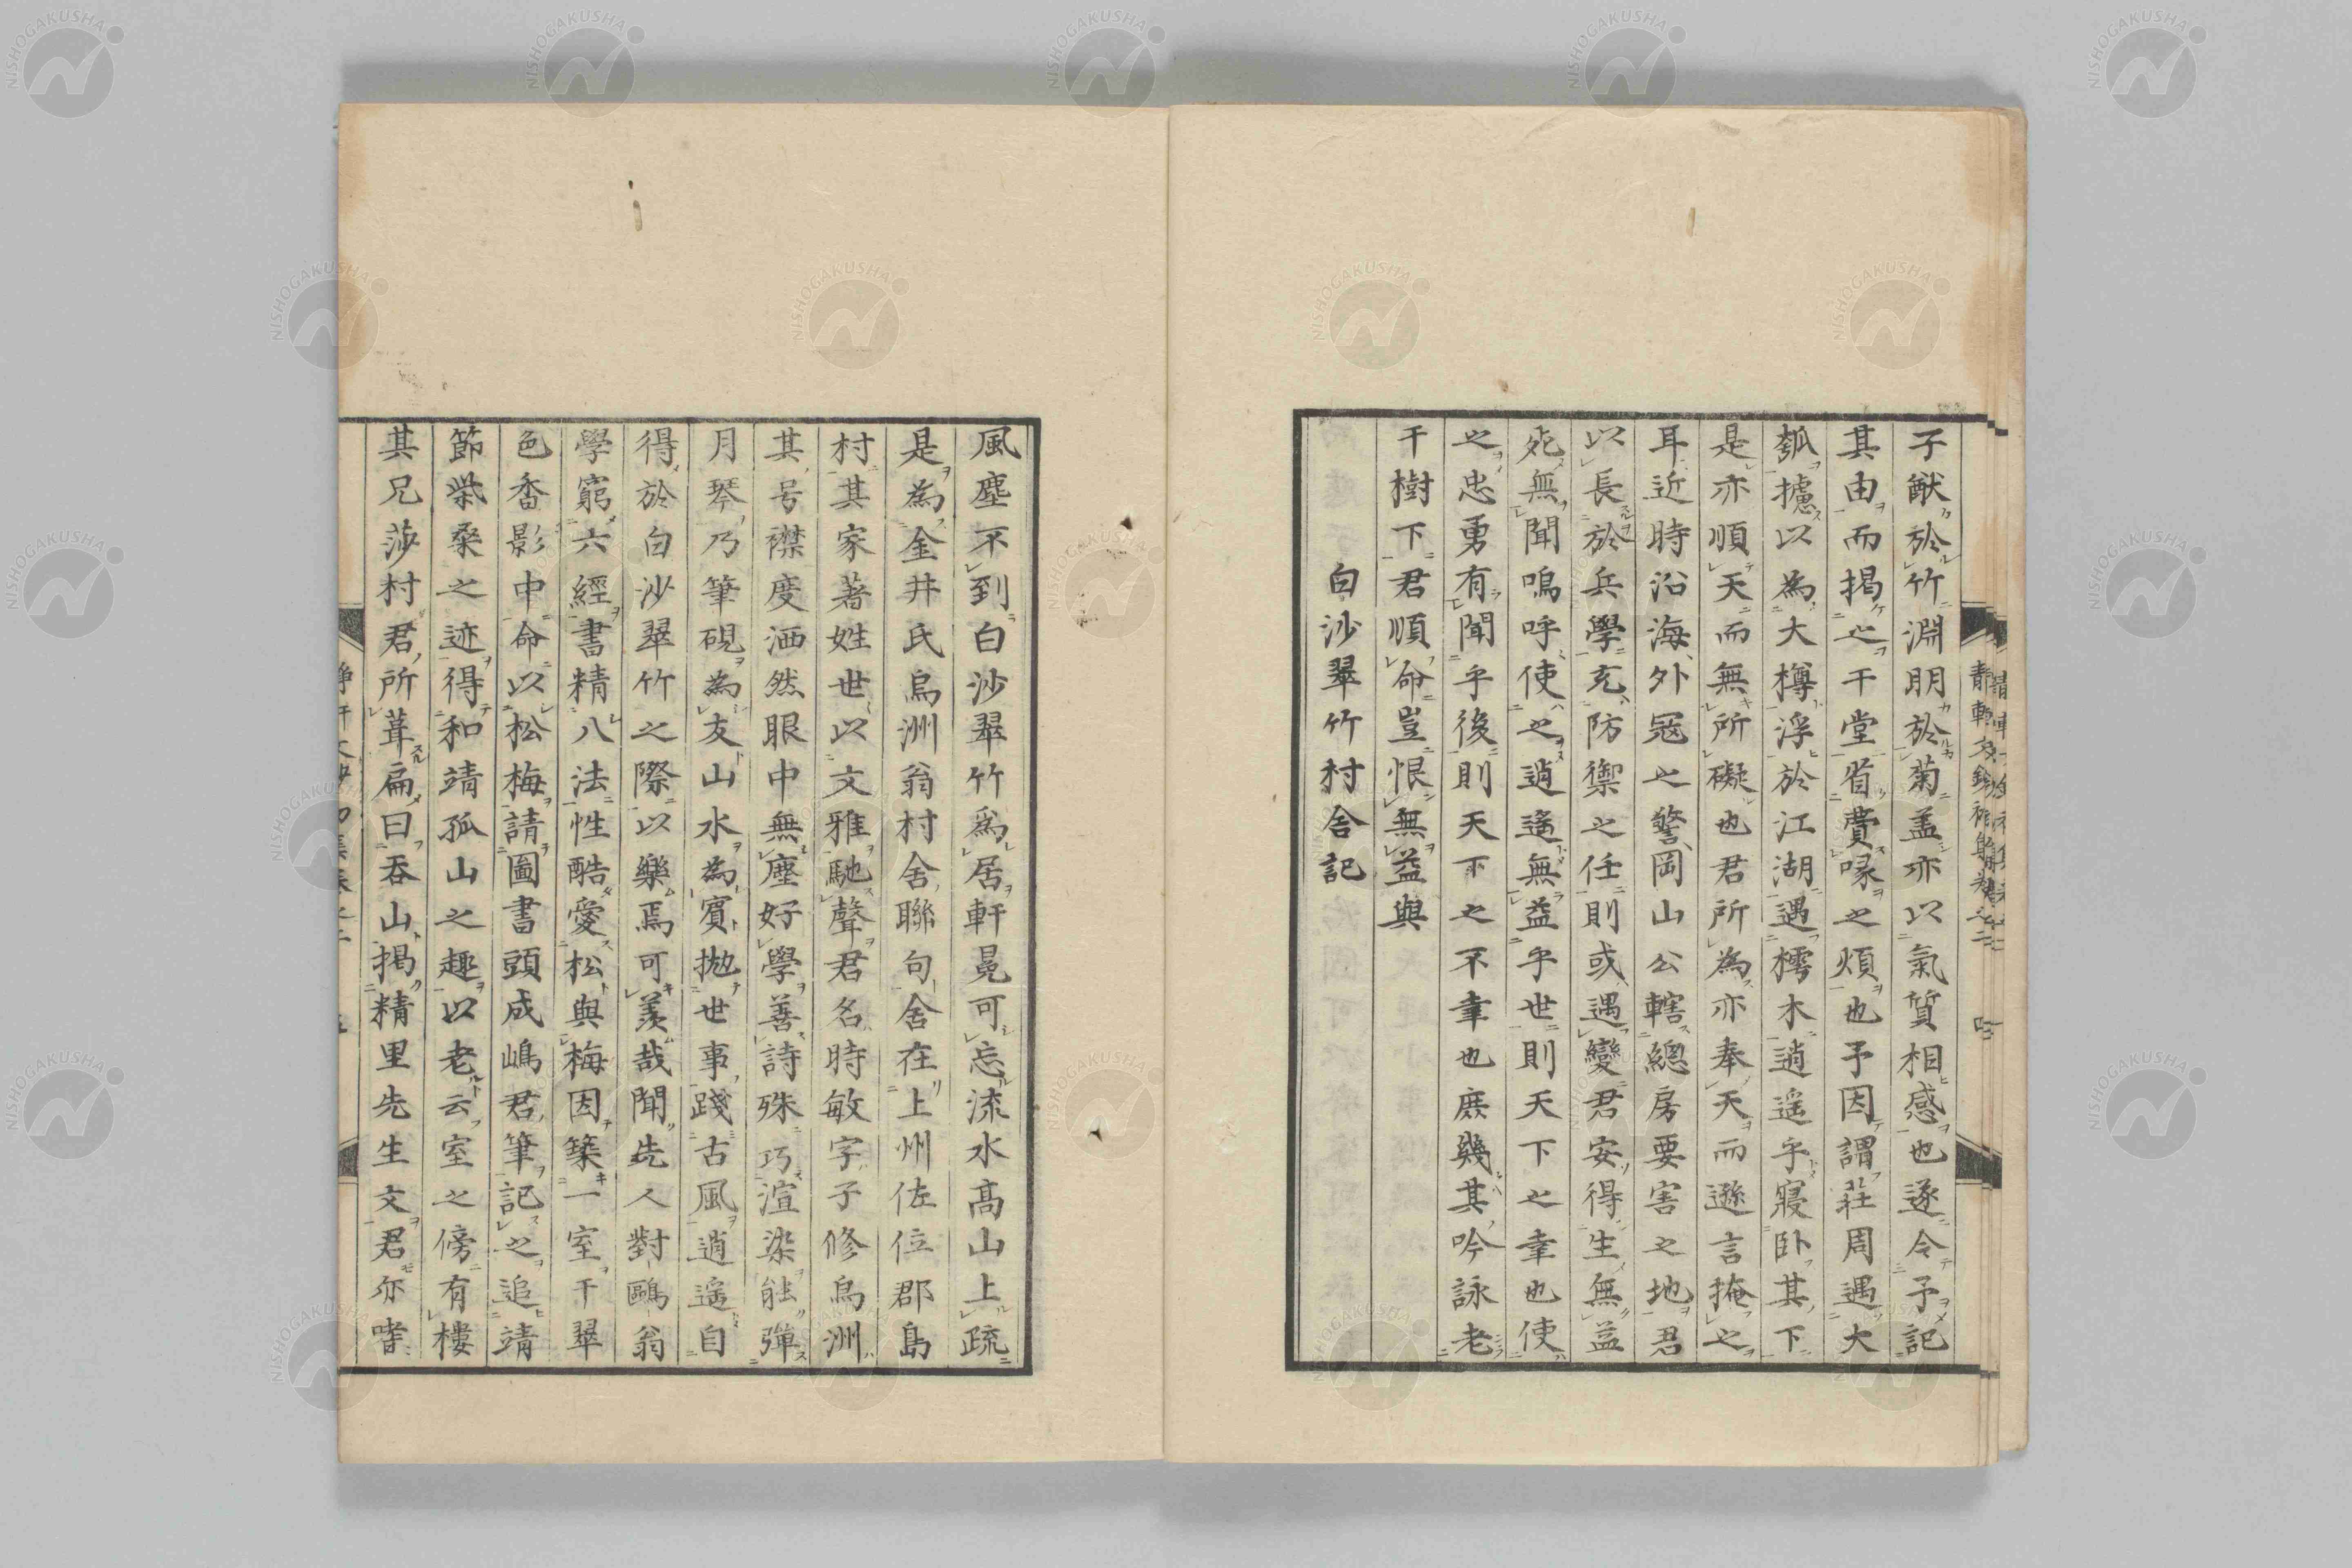 子猷於竹淵明於菊盖亦以氣質相感也遂令予記
其由而揭之干堂省費喙之煩也予因謂莊周遇大
瓠攄以為大樽浮於江湖遇樗木逍遥乎寢臥其下
是亦順天而無所礙也君所為亦奉天而遜言掩之
耳近時沿海外冦之警岡山公轄總房要害之地君
以長於兵學充防禦之任則或遇變君安得生無益
死無聞嗚呼使之逍遥無益乎世則天下之幸也使
之忠勇有聞乎後則天下之不幸也庶幾其吟詠老
干樹下君順命豈恨無益與
白沙翠竹村舍記
風塵不到白沙翠竹為居軒冕可忘流水髙山上疏
是為金井氏烏洲翁村舍聯句舍在上州佐位郡島
村其家著姓世以文雅馳聲君名時敏字子修烏洲
其号襟度洒然眼中無塵好學善詩殊巧渲染能彈
月琴乃筆硯為友山水為賓拋世事踐古風逍遥自
得於白沙翠竹之際以樂焉可羨哉聞先人對鷗翁
學窮六經書精八法性酷愛松與梅因築一室干翠
色香影中命以松梅請圖書頭成嶋君筆記之追靖
節柴桑之迹得和靖孤山之趣以老云室之傍有樓
其兄莎村君所葺扁曰吞山揭精里先生文君亦嗜
NISHOGAKUSHA